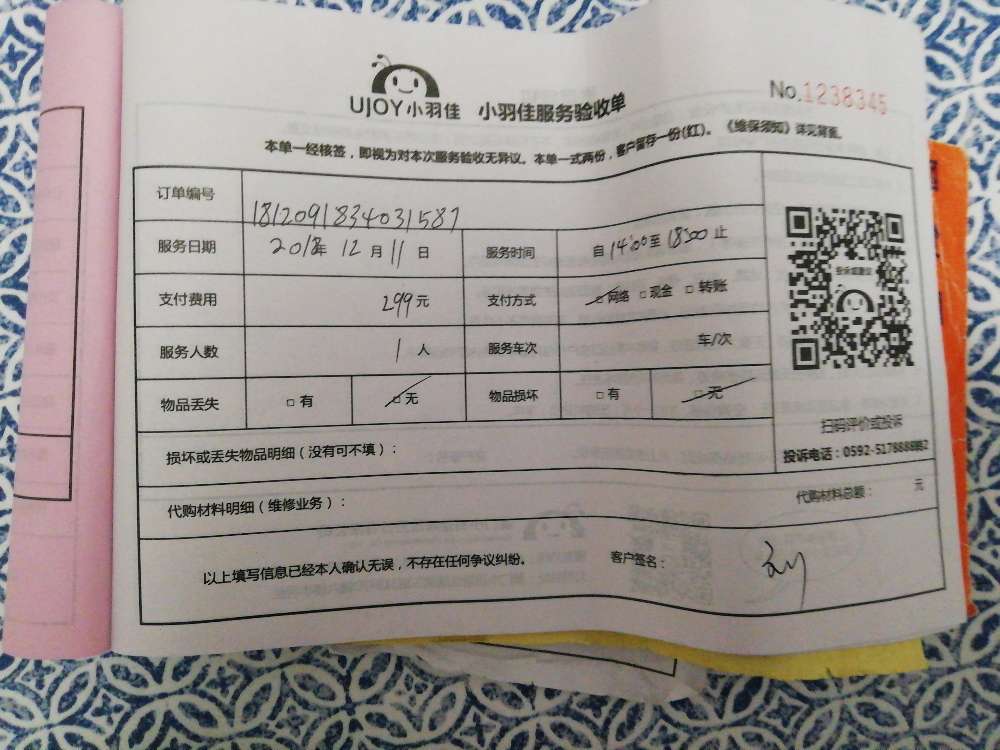 UJOY小羽佳 小羽佳服务验收单
No.1238345
本单一经核签，即视为对本次服务验收无异议。本单一式两份，客户留存一份(红)。《维保须知》详见背面。
订单编号 1812091834031587
服务日期 2018年 12月 11日 服务时间 自14:00至18:00止
支付费用 299元 支付方式 □网络 □现金 □转账
服务人数 1人 服务车次 车/次
物品丢失 □有 □无 物品损坏 □有 □无
扫码评价或投诉
损坏或丢失物品明细（没有可不填）：
投诉电话：0592-5178888
代购材料明细（维修业务）： 代购材料总额： 元
以上填写信息已经本人确认无误，不存在任何争议纠纷。 客户签名：